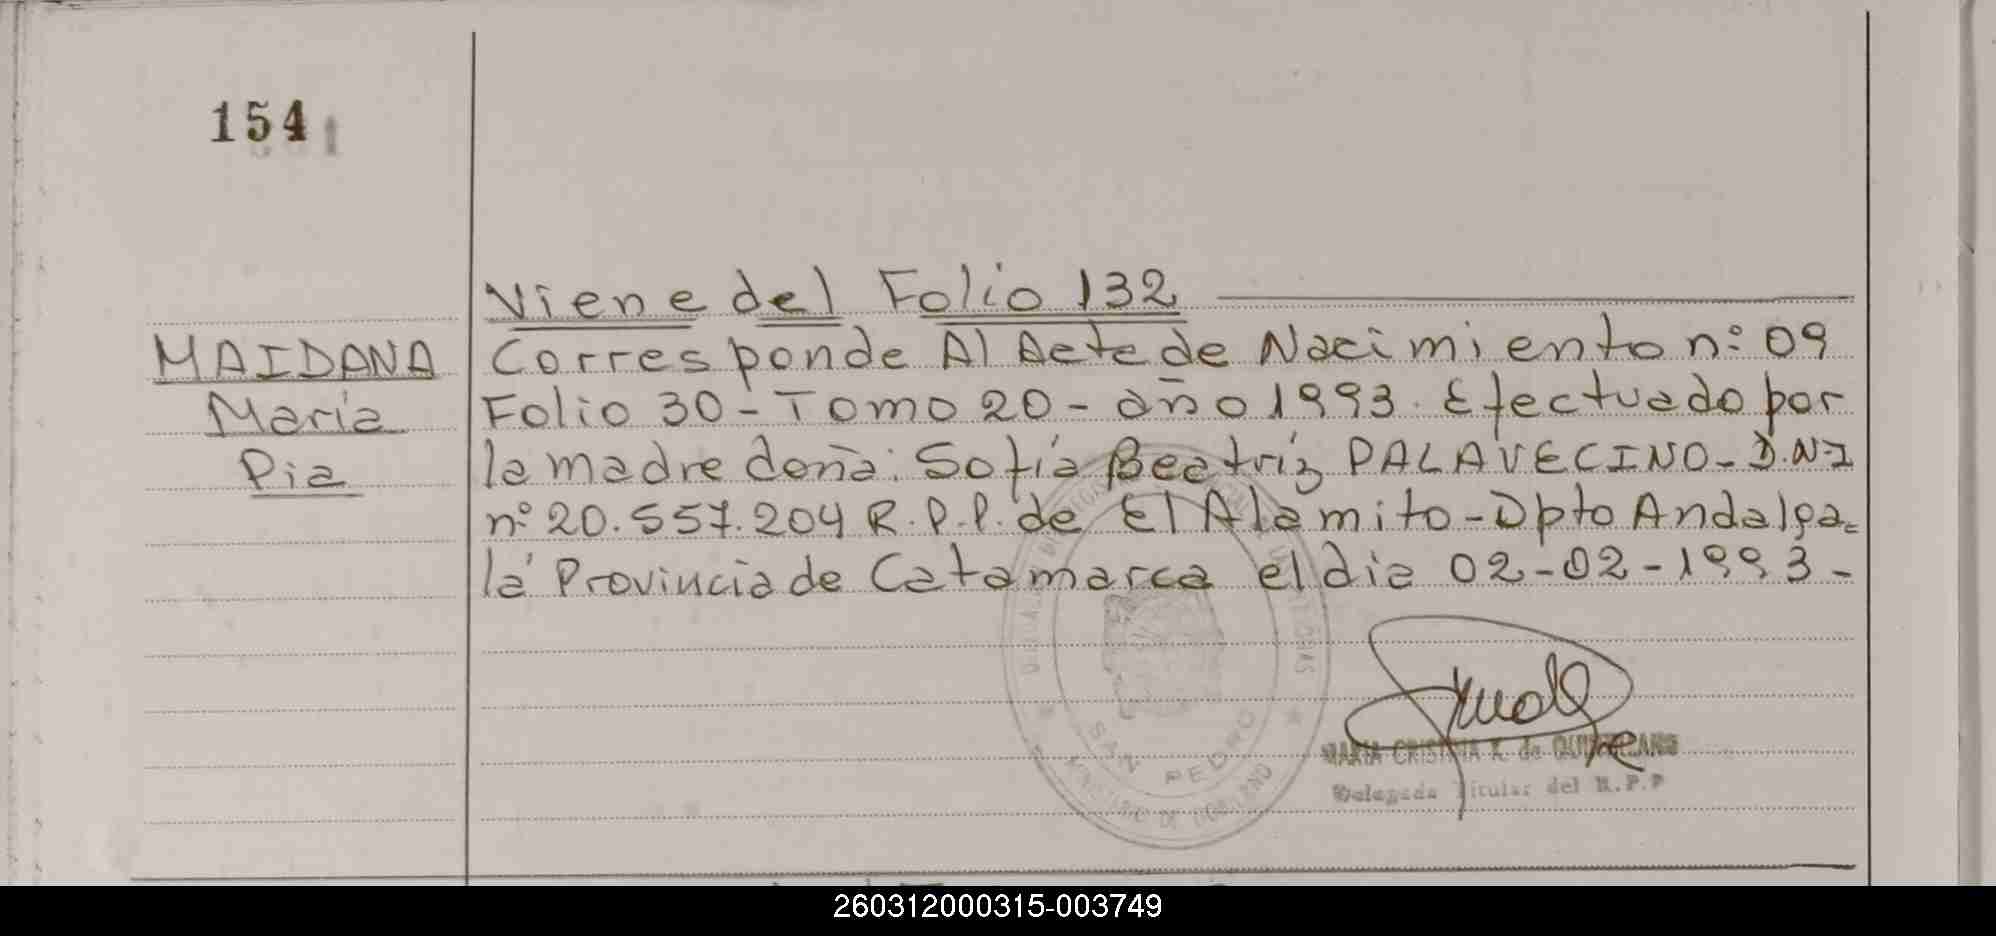 154
Viene del Folio 132
MAIDANA
María
Pia
Corresponde Al Acta de Nacimiento n: 09
Folio 30 - Tomo 20 - año 1993. Efectuado por
la madre doña: Sofía Beatríz PALAVECINO - D.N.I
nº 20.557.204 R.P.P. de El Alamito - Dpto Andalga=
lá Provincia de Catamarca el dia 02-02-1993 -
SAN PEDRO
MINISTERIO DE GOBIERNO
MARIA CRISTINA de
Delegada Titular del R.P.P
260312000315-003749